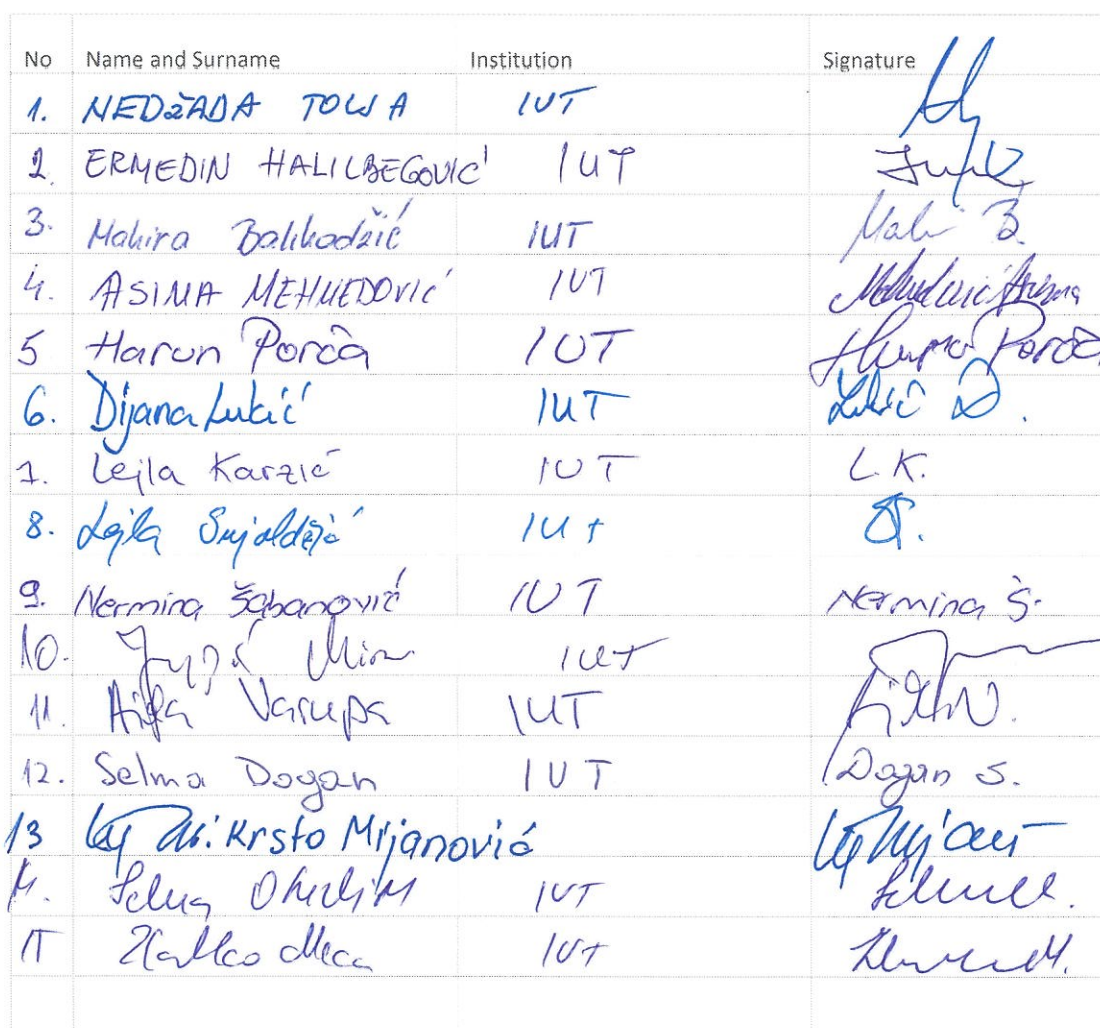 No Name and Surname Institution Signature
1. NEDŽADA TOLJA IUT
2. ERMEDIN HALILBEGOVIĆ IUT
3. Mahira Balihodžić IUT Mahi B.
4. ASIMA MEHMEDOVIĆ IUT Mehmedović Asima
5 Harun Porča IUT Harun Porča
6. Dijana Lukić IUT Lukić D.
7. Lejla Karzić IUT L.K.
8. Lejla IUT
9. Nermina Šabanović IUT Nermina Š.
10. IUT
11. Varupa IUT
12. Selma Dogan IUT Dogan S.
13 Krsto Mijanović
14. Selma IUT
15 IUT